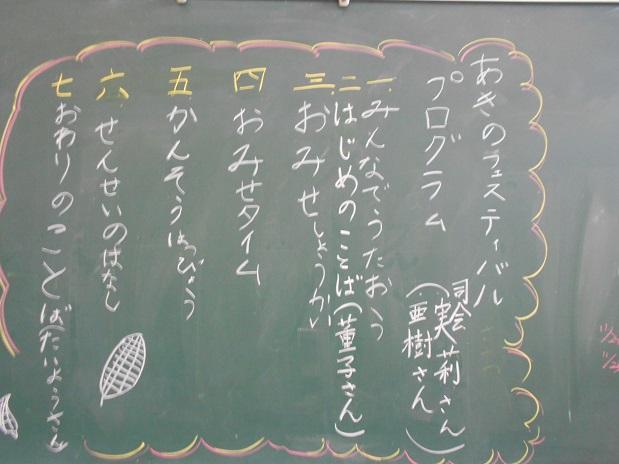 あきのフェスティバル
プログラム
司会
(実莉さん
亜樹さん)
一 みんなでうたおう
二 はじめのことば(菫子さん)
三 おみせしょうかい
四 おみせタイム
五 かんそうはっぴょう
六 せんせいのはなし
七 おわりのことば(たいようさん)